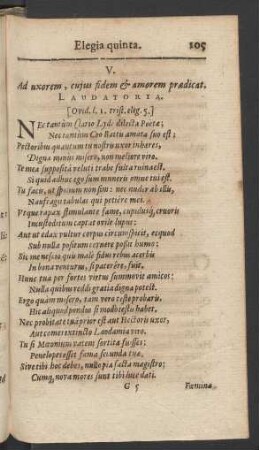 Elegia quinta. 105
V.
Ad uxorem, cujus fidem & amorem prædicat.
LAUDATORIA.
[Ovid. l. 1. trist. eleg. 5.]
NEc tantum Clario Lyde dilecta Poëtæ;
Nec tantum Coo Battis amata suo est;
Pectoribus quantum tu nostris uxor inhæres,
Digna minus misero, non meliore viro.
Te mea supposita veluti trabe fulta ruina est.
Si quid adhuc ego sum muneris omne tui est.
Tu facis, ut spolium non sim: nec nuder ab illis,
Naufragii tabulas qui petiere mei.
Utque rapax stimulante fame, cupidusque, cruoris
Incustoditum captat ovile lupus:
Aut ut edax vultur corpus circumspicit, ecquod
Sub nulla positum cernere possit humo;
Sic mea nescio quis male fidus rebus acerbis
In bona venturus, si paterêre, fuit.
Hunc tua per fortes virtus summovit amicos:
Nulla quibus reddi gratia digna potest.
Ergo quàm misero, tam vero teste probaris.
Hic aliquod pondus si modò testis habet.
Nec probitate tuâ prior est aut Hectoris uxor,
Aut comes extincto Laodamia viro.
Tu si Mæonium vatem sortita fuisses:
Penelopes esset fama secunda tuæ.
Sive tibi hoc debes, nulla pia facta magistro;
Cumque, nova mores sunt tibi luce dati.
G 5 Fœmina